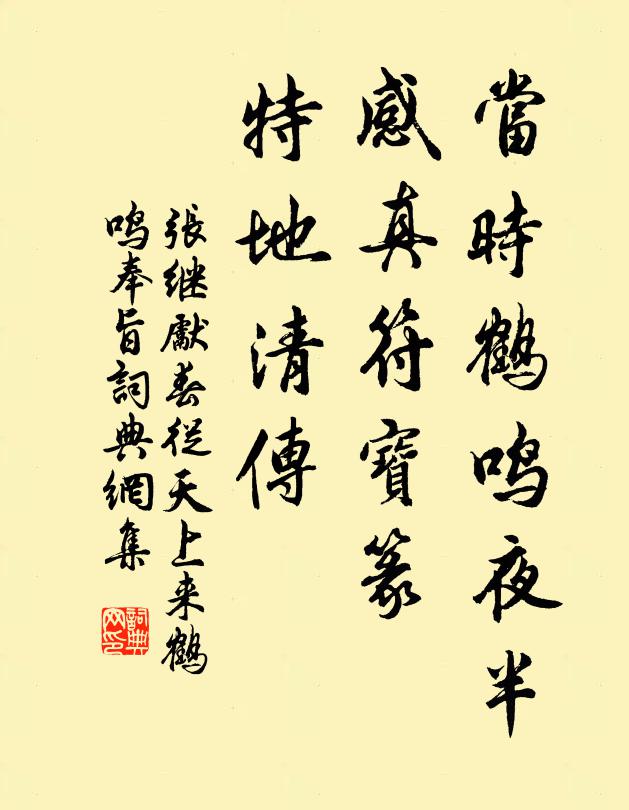 當時鶴鳴夜半
感真符寶篆
特地清傳
張继獻春從天上来鶴
鳴奉旨詞典網集
詞典网印